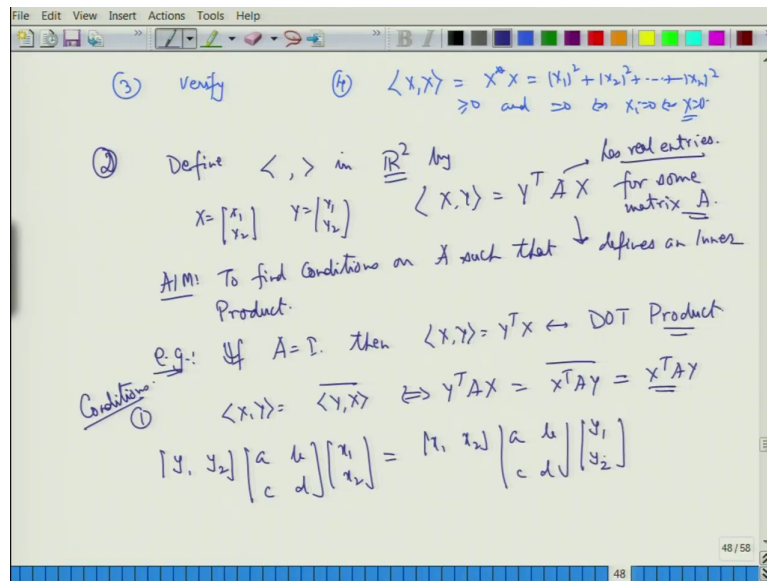 File Edit View Insert Actions Tools Help
③ Verify ④ <x,x> = x*x = |x₁|² + |x₂|² + ---- + |xₙ|²
≥0 and =0 ⇔ xᵢ=0 ⇔ x=0.
② Define < , > in ℝ² by has real entries.
X = [x₁ x₂] Y = [y₁ y₂] <X,Y> = Yᵀ A X for some
matrix A.
AIM: To find Conditions on A such that ↓ defines an Inner
Product.
e.g.: If A=I. then <X,Y> = YᵀX ↔ DOT Product
Conditions:
① <X,Y> = \overline{<Y,X>} ⇔ YᵀAX = \overline{XᵀAY} = XᵀAY
[y₁ y₂] [a b; c d] [x₁; x₂] = [x₁ x₂] [a b; c d] [y₁; y₂]
48 / 58
48